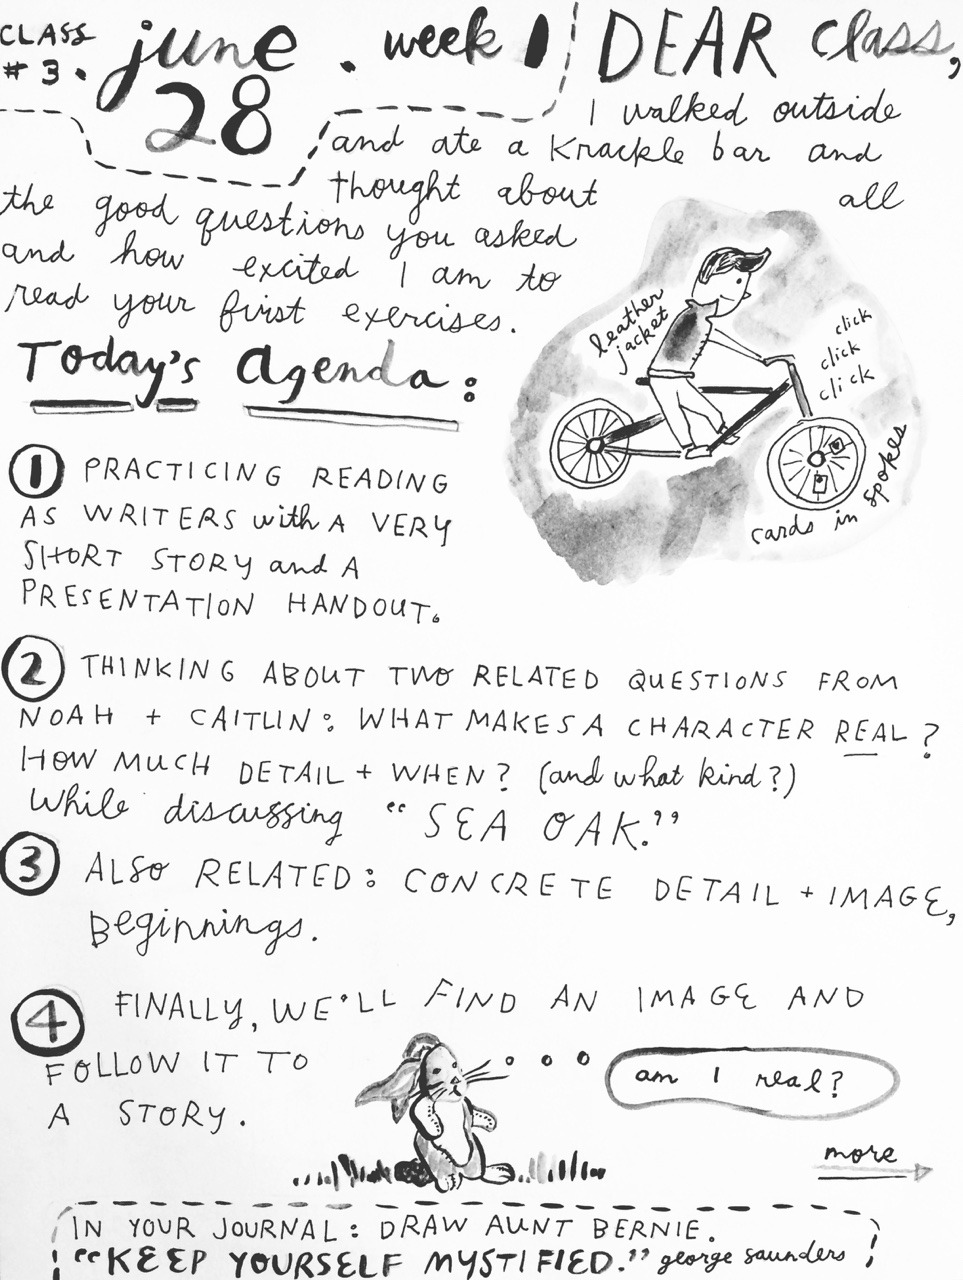 CLASS
#3.
june
28
. week 1
DEAR class,
I walked outside
and ate a Krackle bar and
thought about all
the good questions you asked
and how excited I am to
read your first exercises.
leather
jacket
click
click
click
cards in spokes
Today's agenda:
1 PRACTICING READING
AS WRITERS with A VERY
SHORT STORY and A
PRESENTATION HANDOUT.
2 THINKING ABOUT TWO RELATED QUESTIONS FROM
NOAH + CAITLIN: WHAT MAKES A CHARACTER REAL?
HOW MUCH DETAIL + WHEN? (and what kind?)
While discussing "SEA OAK."
3 ALSO RELATED: CONCRETE DETAIL + IMAGE,
Beginnings.
4 FINALLY, WE'LL FIND AN IMAGE AND
FOLLOW IT TO
A STORY.
am I real?
more
IN YOUR JOURNAL: DRAW AUNT BERNIE.
"KEEP YOURSELF MYSTIFIED." george saunders